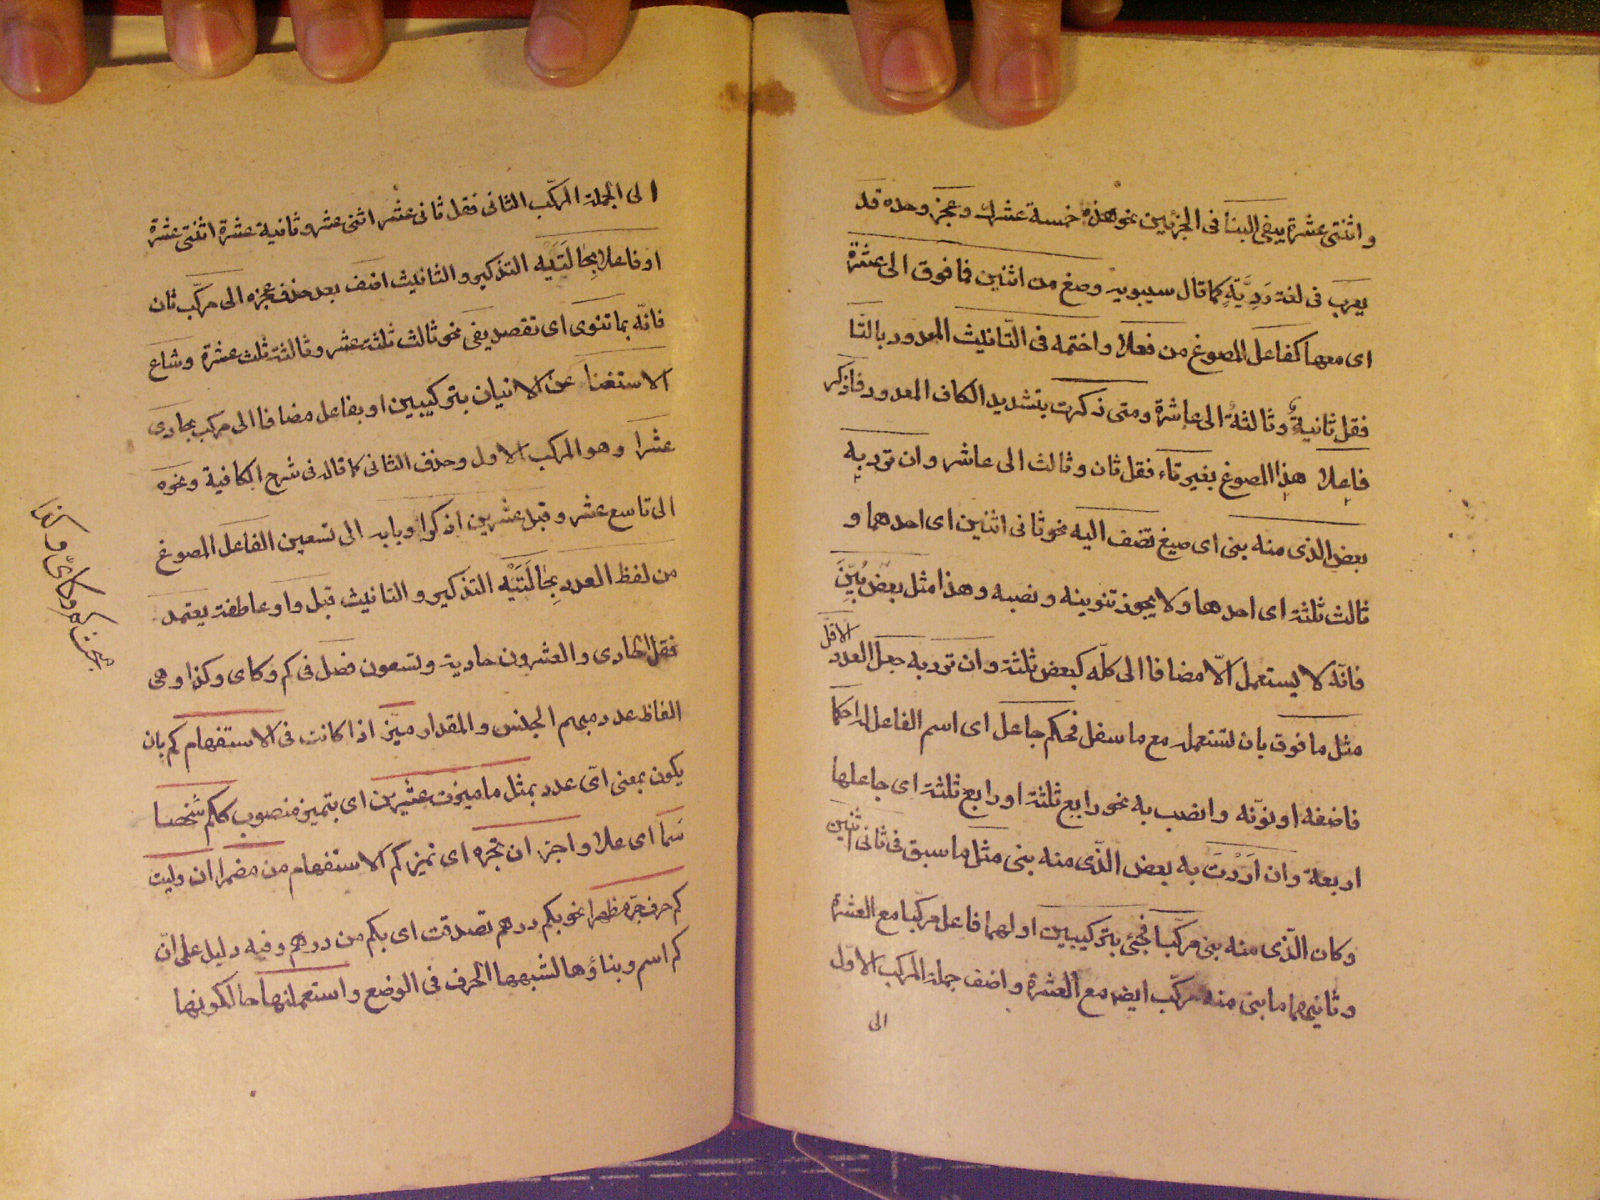 واثنتى عشرة يبقى البنا فى الجزئين نحو هذه خمسة عشرك وعجز وحده قد
يعرب فى لغة رَدِيَّةٍ كما قال سيبويه وصغ من اثنين فما فوق الى عشرة
اى معها كفاعل المصوغ من فعلا واختمه فى التّانيث المعدود بالتّا
فقل ثانيةٌ وثالثةٌ الى عاشرة ومتى ذكرت بتشديد الكاف المعدود فاذكر
فاعلا هذا المصوغ بغير تاء فقل ثان وثالث الى عاشر وان ترد به
بعض الذى منه بنى اى صيغ تضف اليه نحو ثانى اثنين اى احدهما و
ثالث ثلثة اى احدها ولا يجوز تنوينه ونصبه وهذا مثل بعض بُيِّنَ
فانّه لا يستعمل الّا مضافا الى كلّه كبعض ثلثة وان ترد به جعل العدد الاقلّ
مثل ما فوق بان تستعمله مع ما سفل فحكم جاعل اى اسم الفاعل له احكما
فاضفه او نوّنه وانصب به نحو رابع ثلثة او رابع ثلثة اى جاعلها
اربعة وان اَرَدْتَ به بعض الذّى منه بنى مثل ما سبق فى ثانى اثنين
وكان الذّى منه بنى مركّبا فجئ بتركيبين اولهما فاعل مركّبا مع العشرة
وثانيهما ما بنى منه مركّب ايض مع العشرة واضف جملة المركب الاوّل
الى
الى الجملة المركّب الثانى فقل ثانى عشر اثنى عشر وثانية عشرة اثنتى عشرة
او فاعلا بِحالَتَيْه التذكير والتانيث اضف بعد حذف عجزه الى مركّب ثان
فانّه بما تنوى اى تقصد يفى نحو ثالث ثلثة عشر وثالثة ثلث عشرة وشاع
الاستغنا عن الاتيان بتركيبين او بفاعل مضافا الى مركب بحادى
عشرا وهو المركب الاول وحذف الثانى كما قاله فى شرح الكافية ونحوه
الى تاسع عشر وقبل عشرين اذكرا وبابه الى تسعين الفاعل المصوغ
من لفظ العدد بِحالَتَيْه التذكير والتانيث قبل واو عاطفة يعتمد
فقل الحادى والعشرون حادية وتسعون فصل فى كم وكاى وكذا وهى
الفاظ عدد مبهم الجنس والمقدار ميّز اذا كانت فى الاستفهام كم بان
يكون بمعنى اىّ عدد بمثل ما ميزت عشرين اى بتميز منصوب ككم شخصا
سَما اى علا واجز ان تجره اى تميز كم الاستفهام من مضمرا ان وليت
كم حرف جرّ مظهرا نحو بكم درهم تصدقت اى بكم من درهم وفيه دليل على انّ
كم اسم وبناؤها لشبهها الحرف فى الوضع واستعملنها حالكونها
بحث كم وكاىّ وكذا